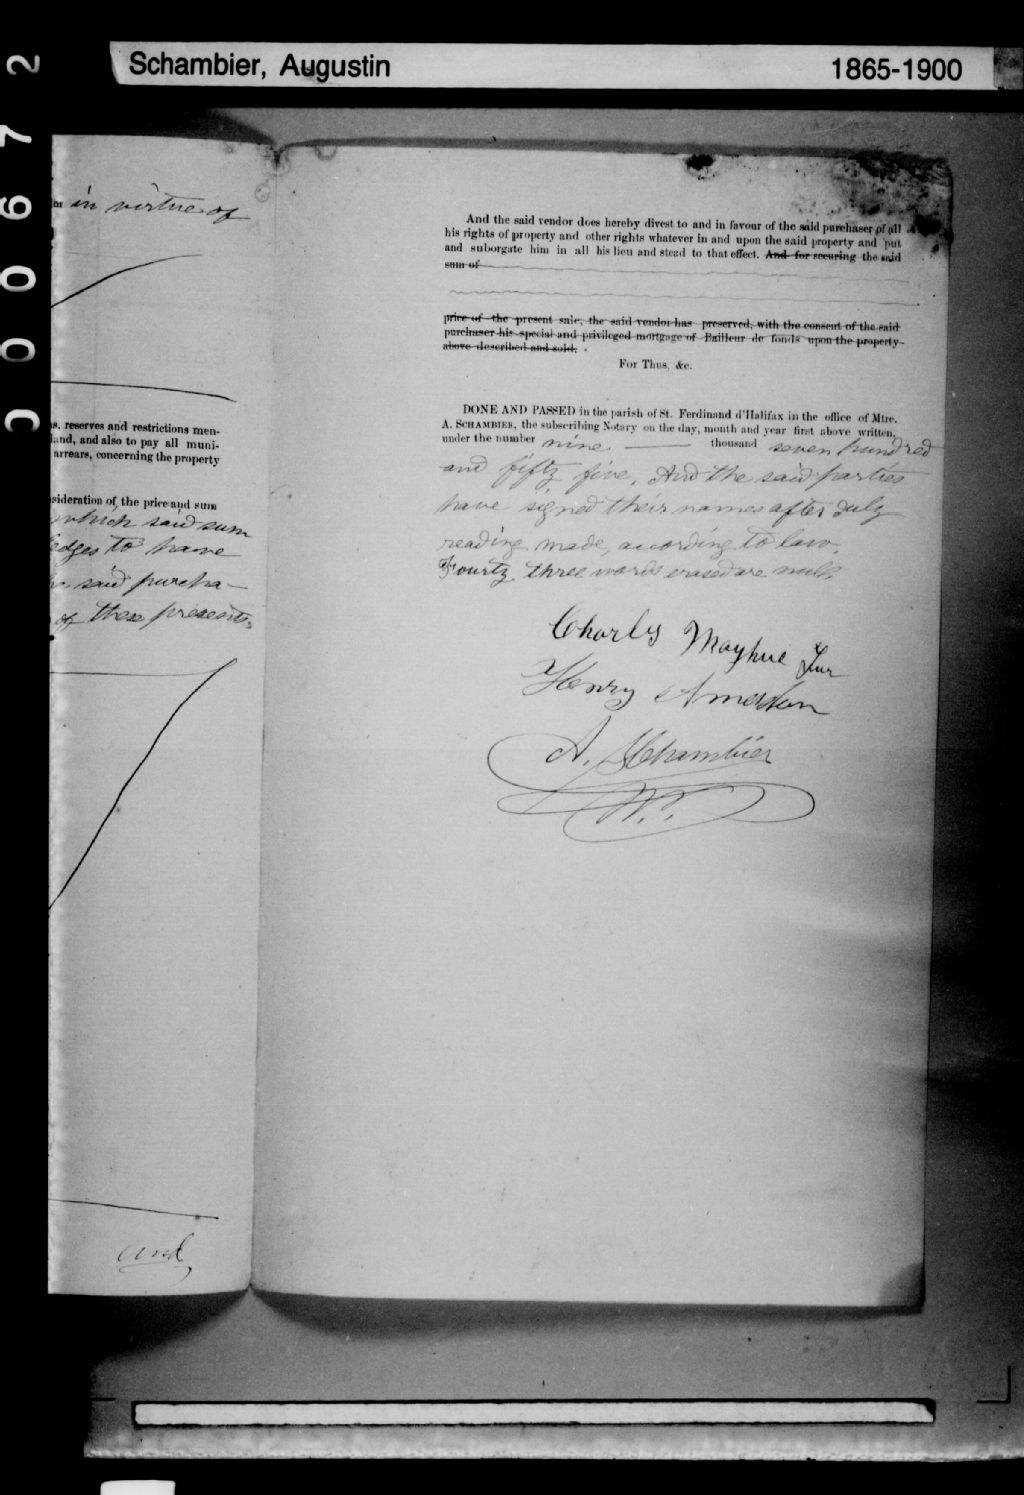 Schambier, Augustin 1865-1900
000672
or in virtue of
s, reserves and restrictions men-
and, and also to pay all muni-
arrears, concerning the property
sideration of the price and sum
which said sum
edges to have
said purcha-
of these presents.
and
And the said vendor does hereby divest to and in favour of the said purchaser of all
his rights of property and other rights whatever in and upon the said property and put
and suborgate him in all his lieu and stead to that effect. And for securing the said
sum of
price of the present sale, the said vendor has preserved, with the consent of the said
purchaser his special and privileged mortgage of Bailleur de fonds upon the property
above described and sold.
For Thus, &c.
DONE AND PASSED in the parish of St. Ferdinand d'Halifax in the office of Mtre.
A. SCHAMBIER, the subscribing Notary on the day, month and year first above written,
under the number nine thousand seven hundred
and fifty five, And the said parties
have signed their names after duly
reading made, according to law.
Fourty three words erased are null.
Charles Mayhue Jur
Henry
A. Schambier
N.P.